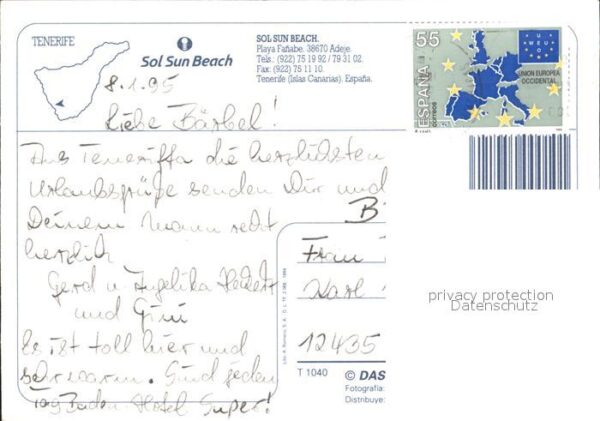 TENERIFE
Sol Sun Beach
SOL SUN BEACH.
Playa Fañabe. 38670 Adeje.
Tels.: (922) 75 19 92 / 79 31 02.
Fax: (922) 75 11 10.
Tenerife (Islas Canarias). España.
55
ESPAÑA
correos
UNION EUROPEA
OCCIDENTAL
8.1.95
Liebe Bärbel!
Aus Teneriffa die herzlichsten
Urlaubsgrüße senden Dir und
Deinem Mann recht
herzlich
Gerd u. Angelika
und Gini
Es ist toll hier und
sehr warm. Sind jeden
Tag Baden Hotel Super!
Frau
Karl
12435
privacy protection
Datenschutz
T 1040
© DAS
Fotografía:
Distribuye: